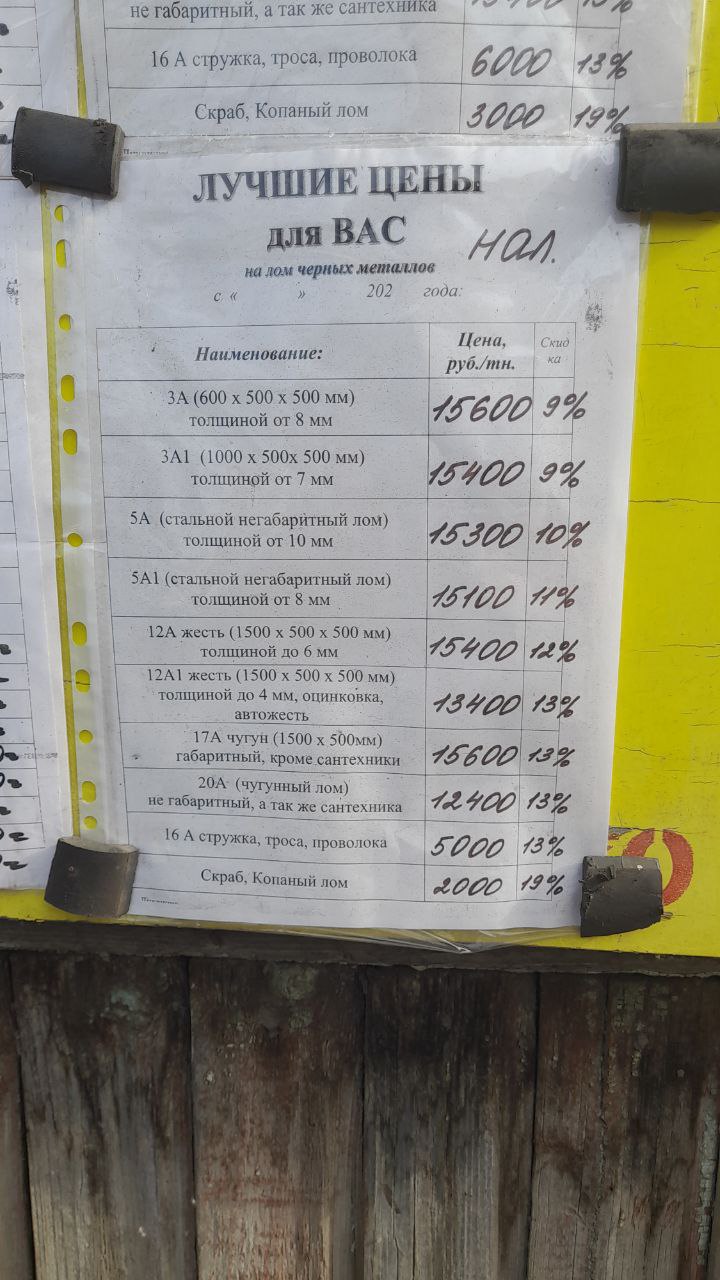 не габаритный, а так же сантехника
16 А стружка, троса, проволока 6000 13%
Скраб, Копаный лом 3000 19%
ЛУЧШИЕ ЦЕНЫ
для ВАС
нал.
на лом черных металлов
с « » 202 года:
Наименование: Цена, руб./тн. Скид ка
3А (600 х 500 х 500 мм)
толщиной от 8 мм 15600 9%
3А1 (1000 х 500х 500 мм)
толщиной от 7 мм 15400 9%
5А (стальной негабаритный лом)
толщиной от 10 мм 15300 10%
5А1 (стальной негабаритный лом)
толщиной от 8 мм 15100 11%
12А жесть (1500 х 500 х 500 мм)
толщиной до 6 мм 15400 12%
12А1 жесть (1500 х 500 х 500 мм)
толщиной до 4 мм, оцинковка, 13400 13%
автожесть
17А чугун (1500 х 500мм)
габаритный, кроме сантехники 15600 13%
20А (чугунный лом)
не габаритный, а так же сантехника 12400 13%
16 А стружка, троса, проволока 5000 13%
Скраб, Копаный лом 2000 19%